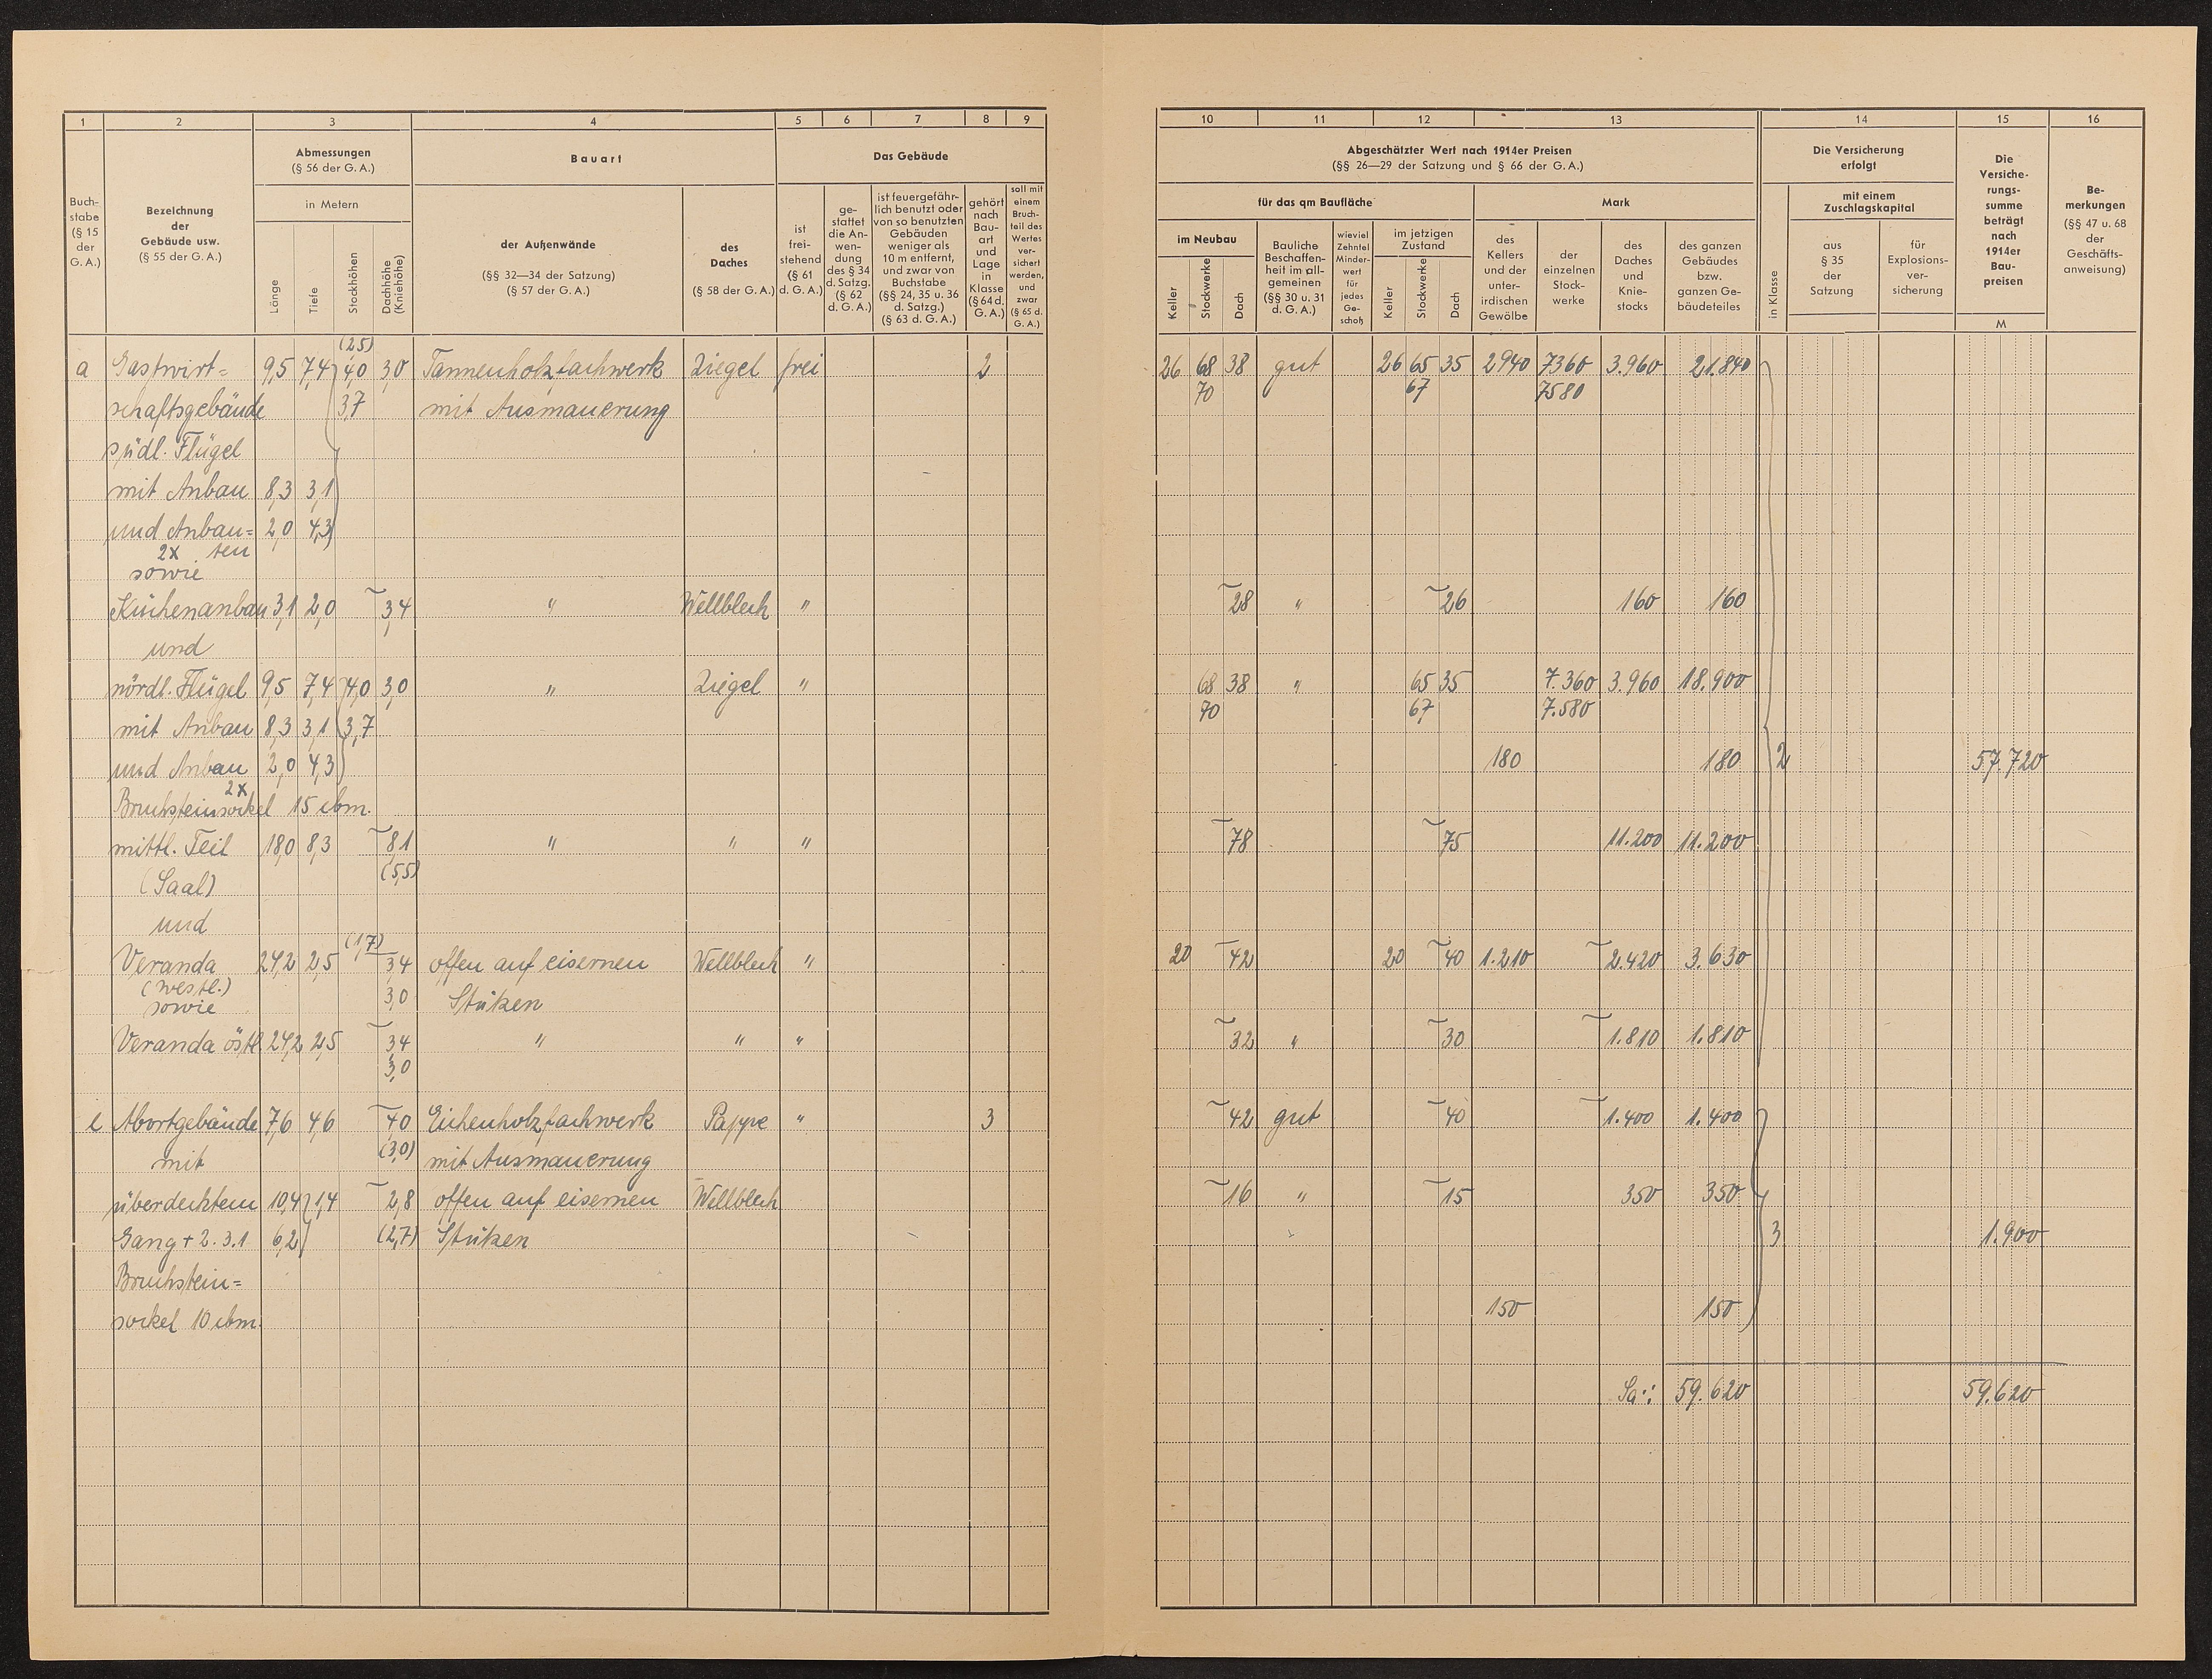 1 2 3 4 5 6 7 8 9
Buch-
stabe
(§ 15
der
G. A.)
Bezeichnung
der
Gebäude usw.
(§ 55 der G. A.)
Abmessungen
(§ 56 der G. A.)
in Metern
Länge
Tiefe
Stockhöhen
Dachhöhe
(Kniehöhe)
Bauart
der Außenwände
(§§ 32—34 der Satzung)
(§ 57 der G. A.)
des
Daches
(§ 58 der G. A.)
Das Gebäude
ist
frei-
stehend
(§ 61
d. G. A.)
ge-
stattet
die An-
wen-
dung
des § 34
d. Satzg.
(§ 62
d. G. A.)
ist feuergefähr-
lich benutzt oder
von so benutzten
Gebäuden
weniger als
10 m entfernt,
und zwar von
Buchstabe
(§§ 24, 35 u. 36
d. Satzg.)
(§ 63 d. G. A.)
gehört
nach
Bau-
art
und
Lage
in
Klasse
(§ 64 d.
G. A.)
soll mit
einem
Bruch-
teil des
Wertes
ver-
sichert
werden,
und
zwar
(§ 65 d.
G. A.)
(2,5)
a Gastwirt= 9,5 7,4 4,0 3,0 Tannenholzfachwerk Ziegel frei 2
schaftsgebäude 3,7 mit Ausmauerung
südl. Flügel
mit Anbau 8,3 3,1
und Anbau= 2,0 4,3
2x ten
sowie
Küchenanbau 3,1 2,0 – 3,4 " Wellblech "
und
nördl. Flügel 9,5 7,4 4,0 3,0 " Ziegel "
mit Anbau 8,3 3,1 3,7
und Anbau 2,0 4,3
2x
Bruchsteinsockel 15 cbm.
mittl. Teil 18,0 8,3 – 8,1 " " "
(Saal) (5,5)
und
(1,7)
Veranda 24,2 2,5 3,4 offen auf eisernen Wellblech "
(westl.) 3,0 Stützen
sowie
Veranda östl. 24,2 2,5 – 3,4 " " "
3,0
e Abortgebäude 7,6 4,6 – 4,0 Eichenholzfachwerk Pappe " 3
mit (3,0) mit Ausmauerung
überdecktem 10,4 1,4 – 2,8 offen auf eisernen Wellblech
Gang + 2.3.1 6,2 (2,7) Stützen
Bruchstein=
sockel 10 cbm.
10 11 12 13 14 15 16
Abgeschätzter Wert nach 1914er Preisen
(§§ 26—29 der Satzung und § 66 der G. A.)
für das qm Baufläche
Mark
im Neubau
Keller
Stockwerke
Dach
Bauliche
Beschaffen-
heit im all-
gemeinen
(§§ 30 u. 31
d. G. A.)
wieviel
Zehntel
Minder-
wert
für
jedes
Ge-
schoß
im jetzigen
Zustand
Keller
Stockwerke
Dach
des
Kellers
und der
unter-
irdischen
Gewölbe
der
einzelnen
Stock-
werke
des
Daches
und
Knie-
stocks
des ganzen
Gebäudes
bzw.
ganzen Ge-
bäudeteiles
Die Versicherung
erfolgt
in Klasse
mit einem
Zuschlagskapital
aus
§ 35
der
Satzung
für
Explosions-
ver-
sicherung
Die
Versiche-
rungs-
summe
beträgt
nach
1914er
Bau-
preisen
M
Be-
merkungen
(§§ 47 u. 68
der
Geschäfts-
anweisung)
26 68 38 gut 26 65 35 2940 7360 3.960 21.840
70 67 7580
– 28 " – 26 160 160
68 38 " 65 35 7.360 3.960 18.900
70 67 7.580
180 180 2 57.720
– 78 – 75 11.200 11.200
20 – 42 20 – 40 1.210 – 2.420 3.630
– 32 " – 30 – 1.810 1.810
– 42 gut – 40 – 1.400 1.400
– 16 " – 15 350 350
3 1.900
150 150
Sa.: 59.620 59.620